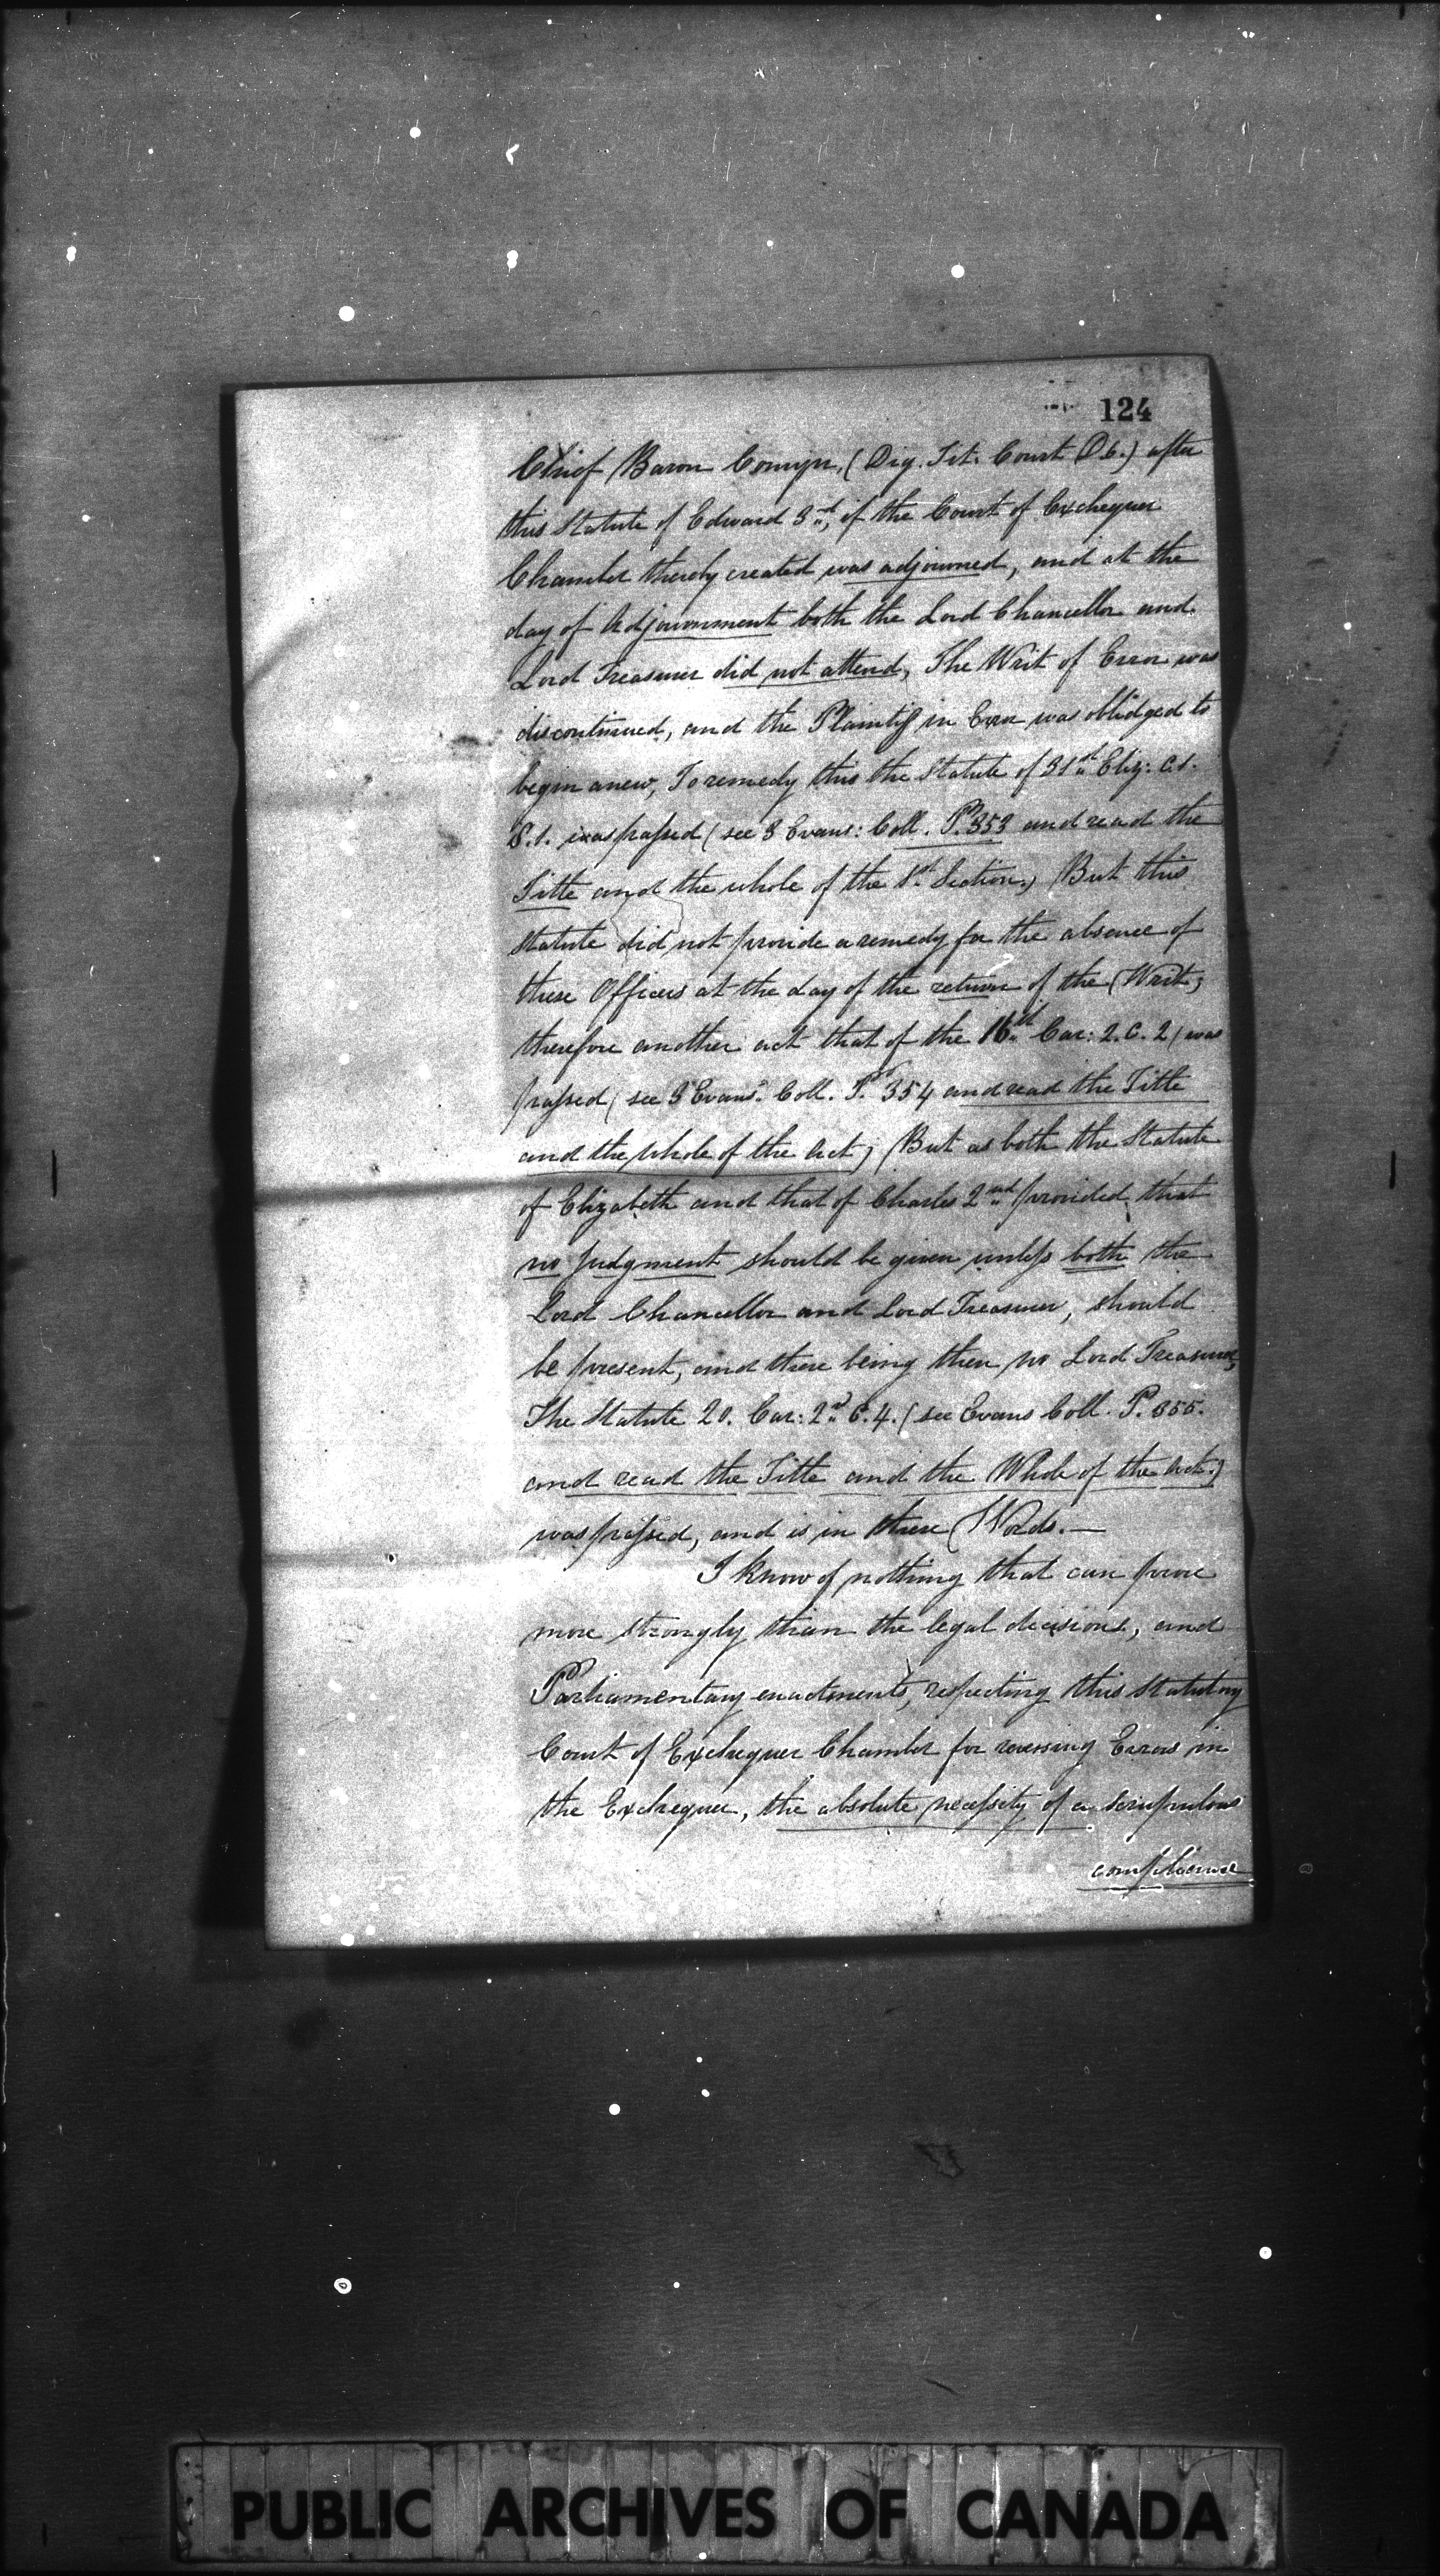 124
Chief Baron Comyn, (Dig. Tit. Court D6.) after
this Statute of Edward 3rd, if the Court of Exchequer
Chamber thereby created was adjourned, and at the
day of Adjournment both the Lord Chancellor and
Lord Treasurer did not attend, The Writ of Error was
discontinued, and the Plaintif in Error was oblidged to
begin anew, To remedy this the Statute of 31st Eliz: C.1.
S.1. was passed (see 3 Evans: Coll. P. 353 and read the
Title and the whole of the 1st Section.) But this
Statute did not provide a remedy for the absence of
these Officers at the day of the return of the Writ;
therefore another act that of the 16th Car: 2. C. 2 (was
passed (see 3 Evans: Coll. P. 354 and read the Title
and the whole of the Act) But as both the Statute
of Elizabeth and that of Charles 2nd provided that
no judgment should be given unless both the
Lord Chancellor and Lord Treasurer, should
be present, and there being then no Lord Treasurer,
The Statute 20. Car: 2nd C. 4. (see Evans Coll. P. 355.
and read the Title and the Whole of the Act.)
was passed, and is in these Words.—
I know of nothing that can prove
more strongly than the legal decisions, and
Parliamentary enactments, respecting this Statutory
Court of Exchequer Chamber for reversing Errors in
the Exchequer, the absolute necessity of a scrupulous
compliance
PUBLIC ARCHIVES OF CANADA